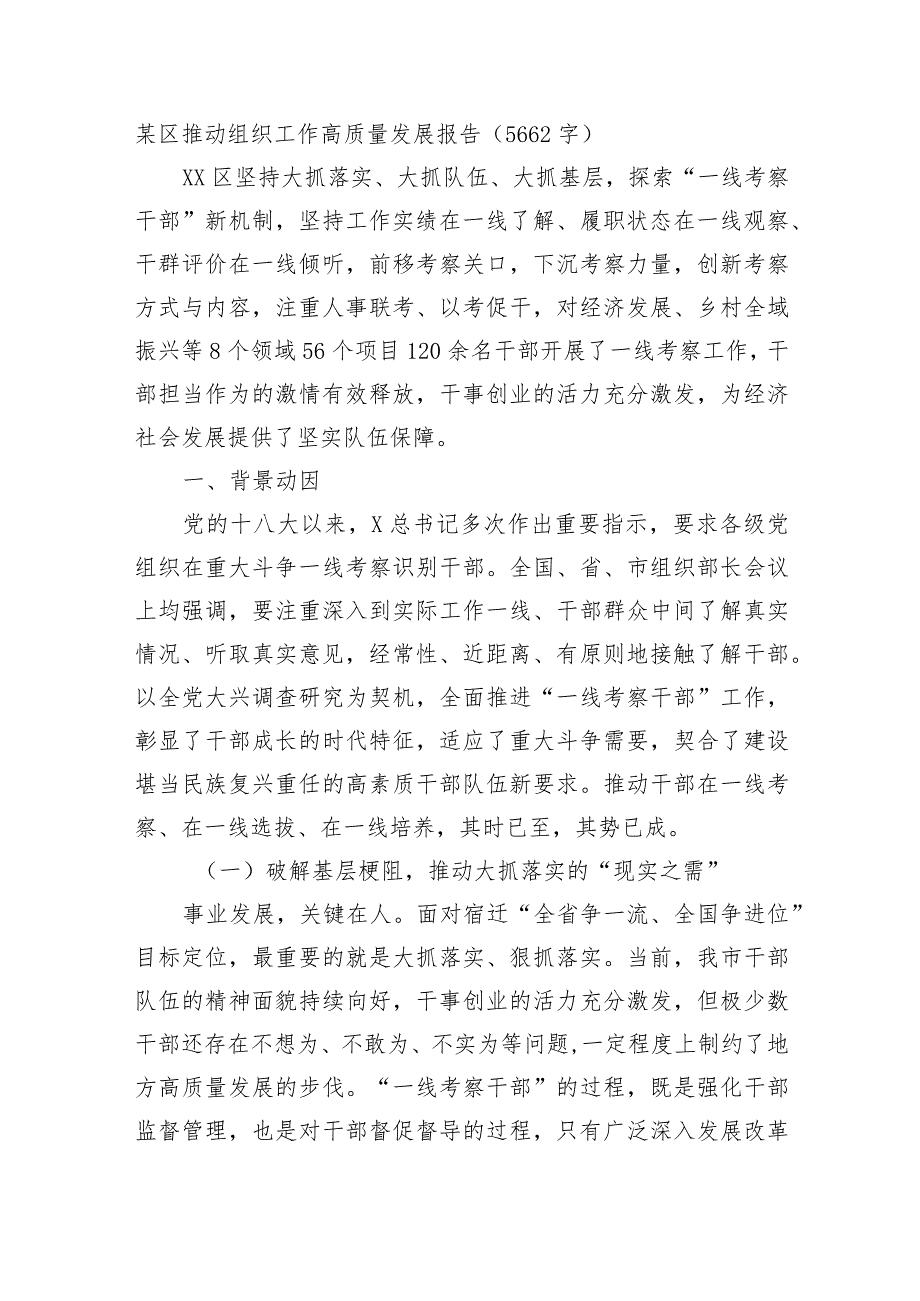 某区推动组织工作高质量发展报告（5662字）
XX区坚持大抓落实、大抓队伍、大抓基层，探索“一线考察
干部”新机制，坚持工作实绩在一线了解、履职状态在一线观察、
干群评价在一线倾听，前移考察关口，下沉考察力量，创新考察
方式与内容，注重人事联考、以考促干，对经济发展、乡村全域
振兴等8个领域56个项目120余名干部开展了一线考察工作，干
部担当作为的激情有效释放，干事创业的活力充分激发，为经济
社会发展提供了坚实队伍保障。
一、背景动因
党的十八大以来，X总书记多次作出重要指示，要求各级党
组织在重大斗争一线考察识别干部。全国、省、市组织部长会议
上均强调，要注重深入到实际工作一线、干部群众中间了解真实
情况、听取真实意见，经常性、近距离、有原则地接触了解干部。
以全党大兴调查研究为契机，全面推进“一线考察干部”工作，
彰显了干部成长的时代特征，适应了重大斗争需要，契合了建设
堪当民族复兴重任的高素质干部队伍新要求。推动干部在一线考
察、在一线选拔、在一线培养，其时已至，其势已成。
（一）破解基层梗阻，推动大抓落实的“现实之需”
事业发展，关键在人。面对宿迁“全省争一流、全国争进位”
目标定位，最重要的就是大抓落实、狠抓落实。当前，我市干部
队伍的精神面貌持续向好，干事创业的活力充分激发，但极少数
干部还存在不想为、不敢为、不实为等问题,一定程度上制约了地
方高质量发展的步伐。“一线考察干部”的过程，既是强化干部
监督管理，也是对干部督促督导的过程，只有广泛深入发展改革